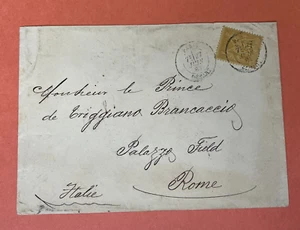 Monsieur le Prince
de Triggiano Brancaccio
Palazzo Field
Rome
Italie